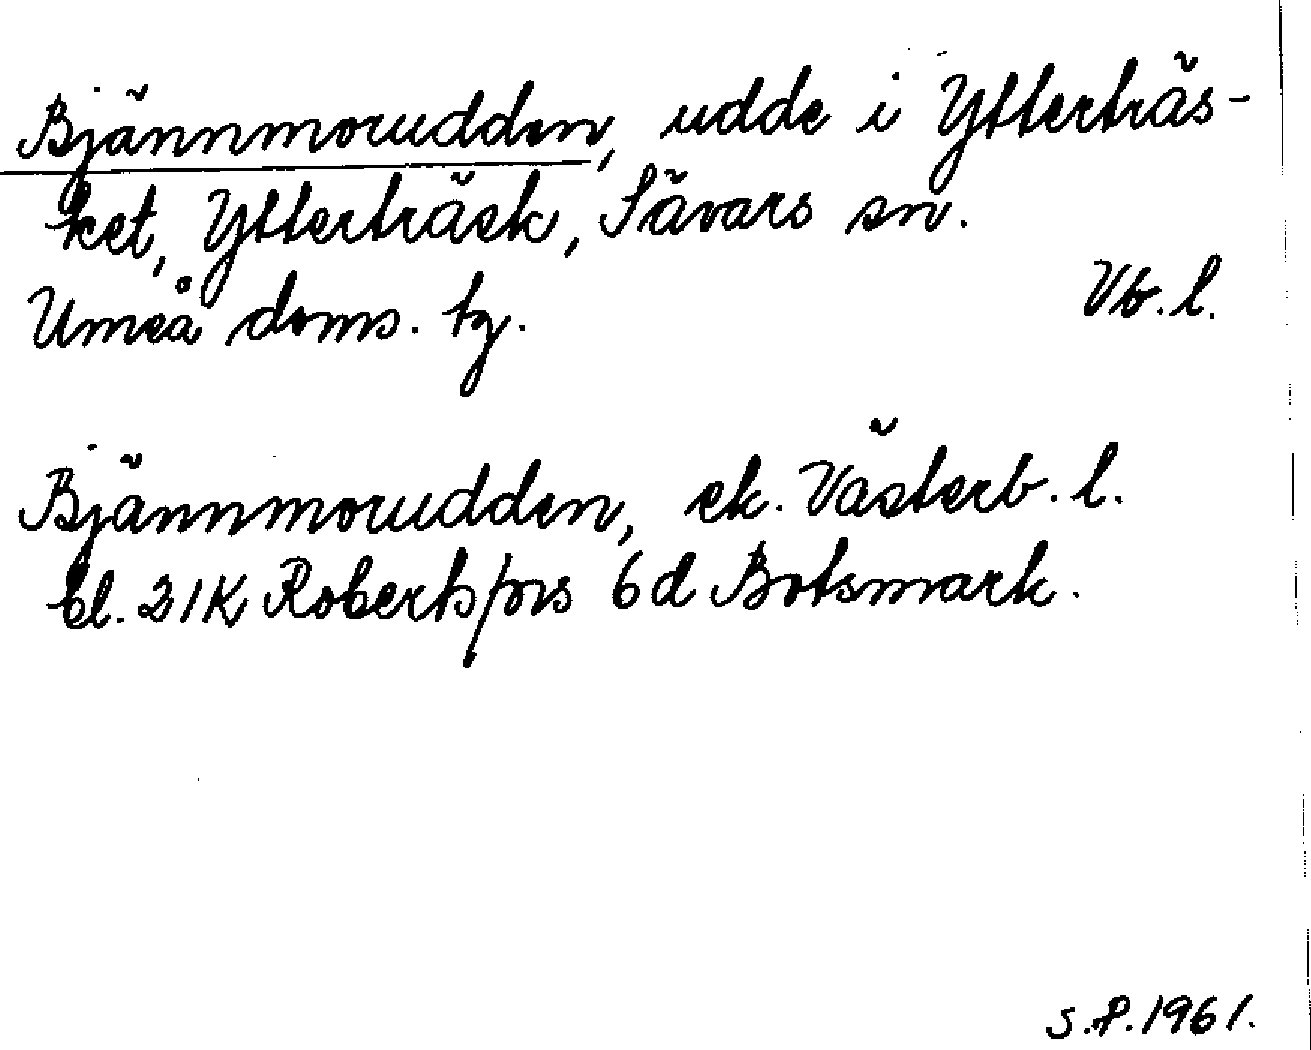 Bjännmorudden, udde i Ytterträs-
ket, Ytterträsk, Sävars sn.
Umeå doms. tg. Vb. l.
Bjännmorudden, ek. Västerb. l.
bl. 21K Robertsfors 6d Botsmark.
S.P. 1961.